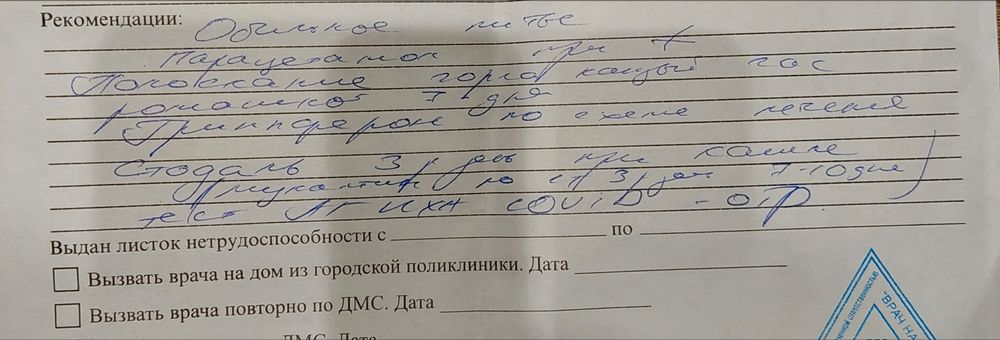 Рекомендации:
Обильное питье
Парацетамол при t
Полоскание горла каждый час
ромашкой 7 дня
Гриппферон по схеме лечения
Стодаль 3 р день при кашле
по 3 р день 7-10 дне
тест АГ ИХА COVID - отр
Выдан листок нетрудоспособности с по
Вызвать врача на дом из городской поликлиники. Дата
Вызвать врача повторно по ДМС. Дата
ДМС. Дата
"ВРАЧ НА
ОТВЕТСТВЕННОСТЬЮ